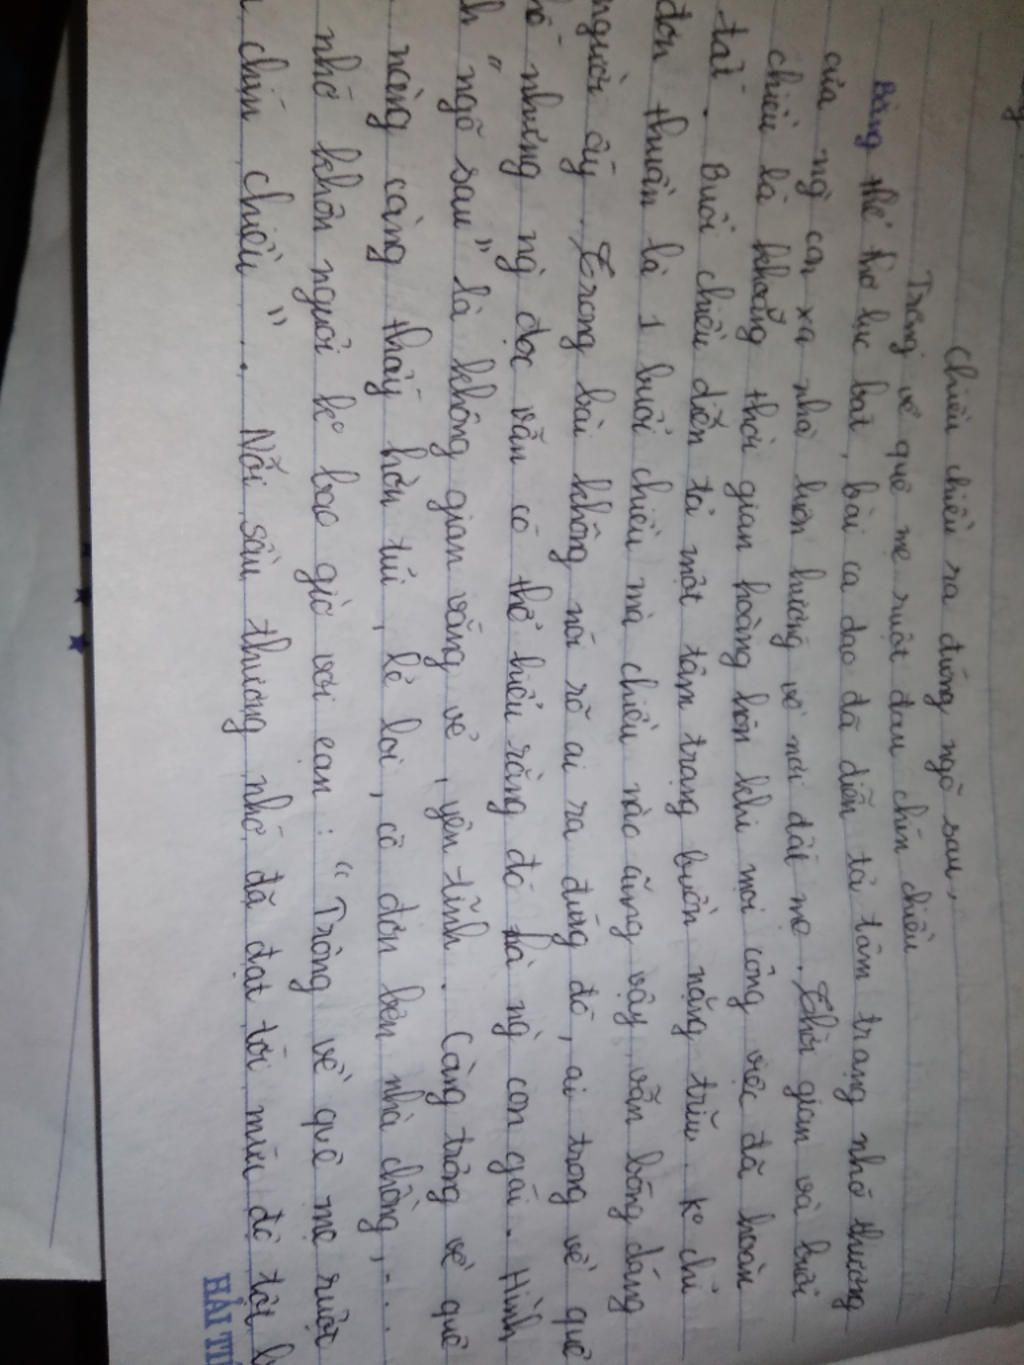 Chiều chiều ra đứng ngõ sau,
Trông về quê mẹ ruột đau chín chiều
Bằng thể thơ lục bát, bài ca dao đã diễn tả tâm trạng nhớ thương
của ng con xa nhà luôn hướng về nơi đất mẹ. Thời gian và buổi
chiều là khoảng thời gian hoàng hôn khi mọi công việc đã hoàn
tất. Buổi chiều diễn tả một tâm trạng buồn nặng trĩu. Ko chỉ
đơn thuần là 1 buổi chiều mà chiều nào cũng vậy vẫn bóng dáng
người ấy. Trong bài không nói rõ ai ra đứng đó, ai trong về quê
nhưng ng đọc vẫn có thể hiểu rằng đó là ng con gái. Hình
"ngõ sau" là không gian vắng vẻ, yên tĩnh. Càng trông về quê
nàng càng thấy hờn tủi, lẻ loi, cô đơn bên nhà chồng,...
nhớ khôn nguôi ko bao giờ vơi cạn: "Trông về quê mẹ ruột
chín chiều". Nỗi sầu thương nhớ đã đạt tới mức độ tột
HẢI TI